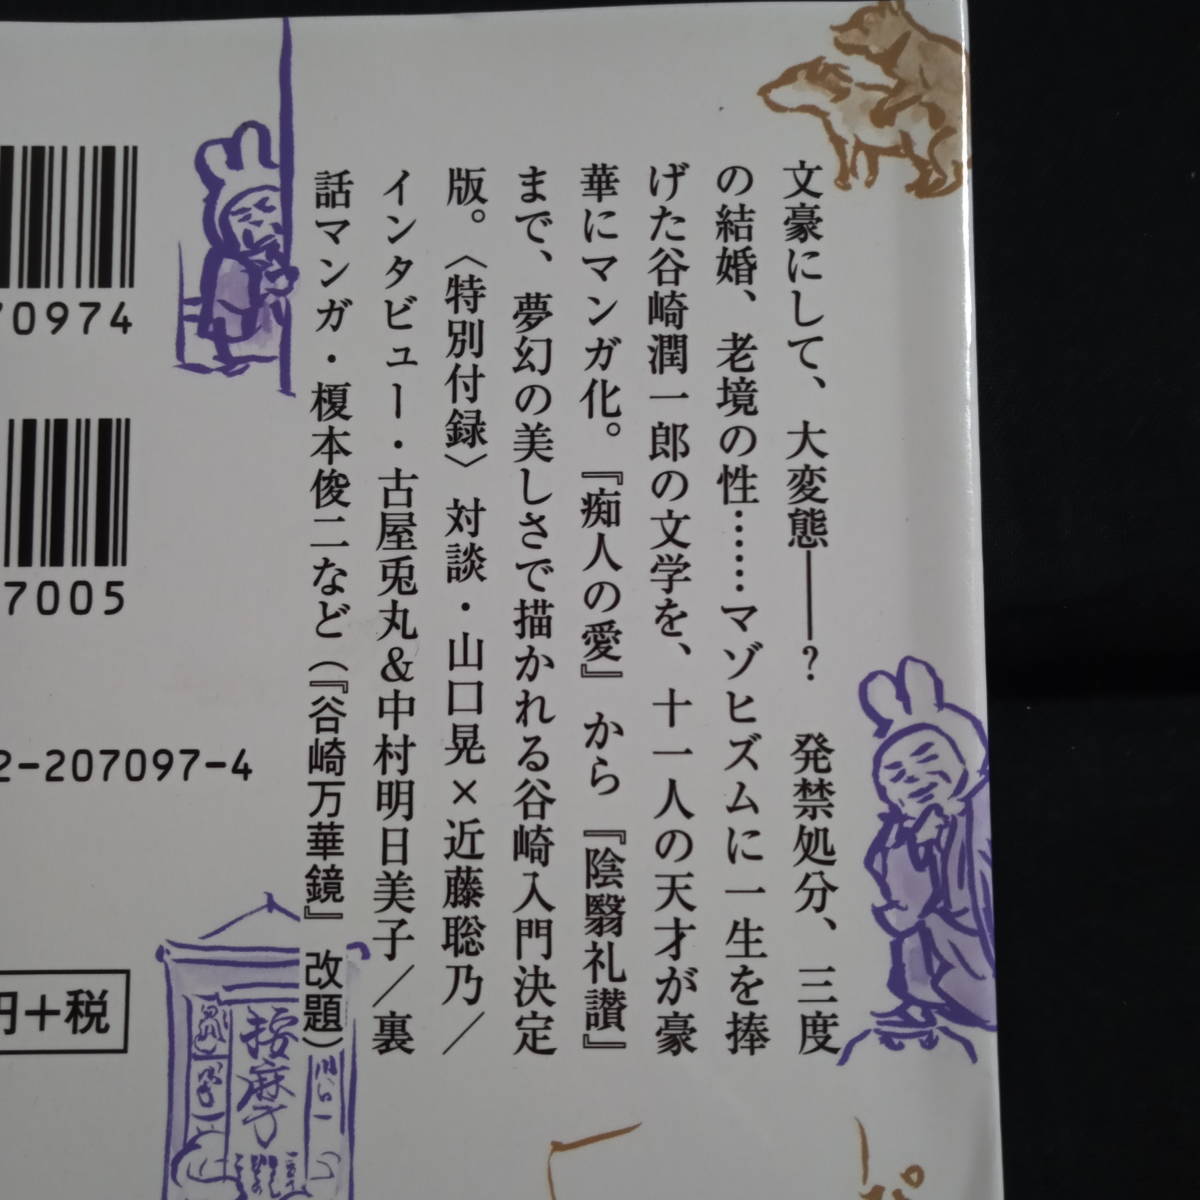 文豪にして、大変態――？　発禁処分、三度
の結婚、老境の性……マゾヒズムに一生を捧
げた谷崎潤一郎の文学を、十一人の天才が豪
華にマンガ化。『痴人の愛』から『陰翳礼讃』
まで、夢幻の美しさで描かれる谷崎入門決定
版。〈特別付録〉対談・山口晃×近藤聡乃／
インタビュー・古屋兎丸＆中村明日美子／裏
話マンガ・榎本俊二など（『谷崎万華鏡』改題）
70974
7005
2-207097-4
円+税
按摩